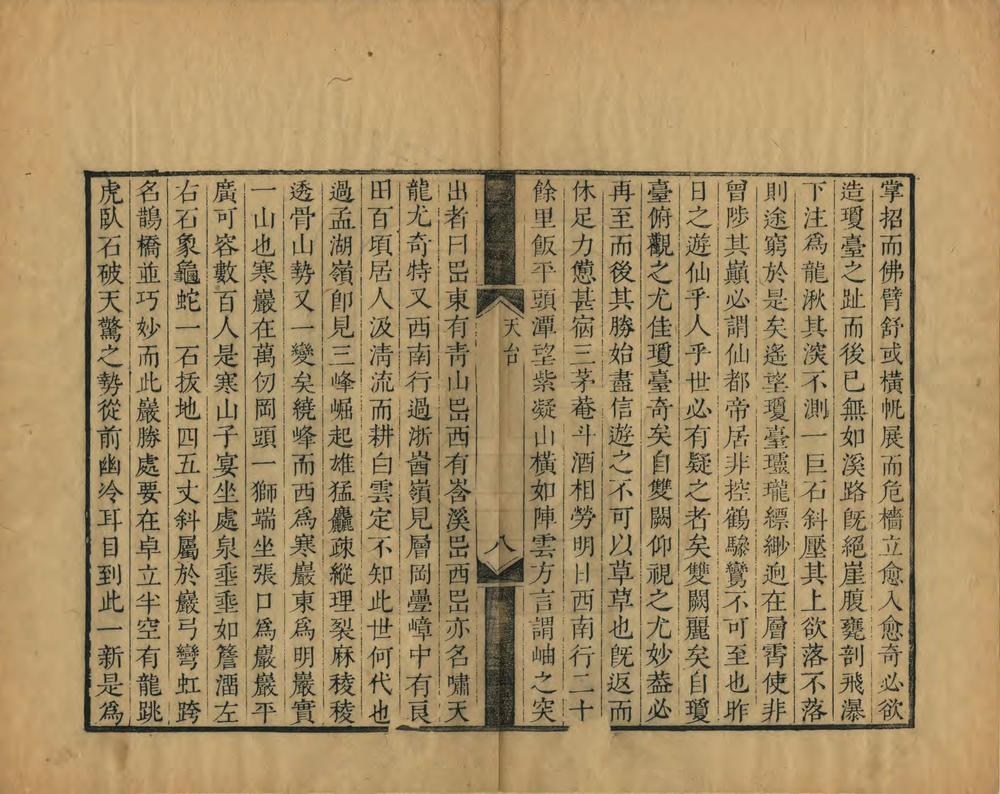 掌招而佛臂舒或橫帆展而危檣立愈入愈奇必欲
造瓊臺之趾而後已無如溪路旣絕崖腹甕剖飛瀑
下注爲龍湫其深不測一巨石斜壓其上欲落不落
則途窮於是矣遙望瓊臺瓏瓏縹緲逈在層霄使非
曾陟其巔必謂仙都帝居非控鶴驂鸞不可至也昨
日之遊仙乎人乎世必有疑之者矣雙闕麗矣自瓊
臺俯觀之尤佳瓊臺奇矣自雙闕仰視之尤妙葢必
再至而後其勝始盡信遊之不可以草草也旣返而
休足力憊甚宿三茅菴斗酒相勞明日西南行二十
餘里飯平頭潭望紫凝山橫如陣雲方言謂岫之突
天台
八
出者曰嵒東有靑山嵒西有峇溪嵒西嵒亦名嘯天
龍尤奇特又西南行過浙嶴嶺見層岡疊嶂中有良
田百頃居人汲淸流而耕白雲定不知此世何代也
過孟湖嶺卽見三峰崛起雄猛麤疎縱理裂麻稜稜
透骨山勢又一變矣繞峰而西爲寒巖東爲明巖實
一山也寒巖在萬仞岡頭一獅端坐張口爲巖巖平
廣可容數百人是寒山子宴坐處泉埀埀如簷溜左
右石象龜蛇一石拔地四五丈斜屬於巖弓彎虹跨
名鵲橋並巧妙而此巖勝處要在卓立半空有龍跳
虎臥石破天驚之勢從前幽冷耳目到此一新是爲